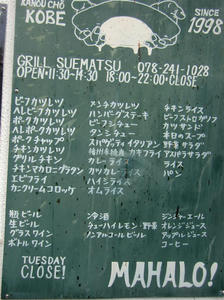 KANOU CHŌ
KOBE
SINCE
1998
GRILL SUEMATSU 078-241-1028
OPEN・11:30-14:30 18:00~22:00・CLOSE
ビーフカツレツ
ヘレビーフカツレツ
ポークカツレツ
ヘレポークカツレツ
ポークチャップ
チキンカツレツ
グリルチキン
チキンマカロニグラタン
エビフライ
カニクリームコロッケ
メンチカツレツ
ハンバーグステーキ
ビーフシチュー
タンシチュー
スパゲッティイタリアン
カキフライ
カレーライス
カツカレー
ハイシライス
オムライス
チキンライス
ビーフストロガノフ
カツサンド
本日のスープ
野菜サラダ
アスパラサラダ
ライス
パン
瓶ビール
生ビール
グラスワイン
ボトルワイン
冷酒
チューハイレモン・野菜
ノンアルコールビール
ジンジャーエール
オレンジジュース
アップルジュース
コーヒー
TUESDAY
CLOSE!
MAHALO!